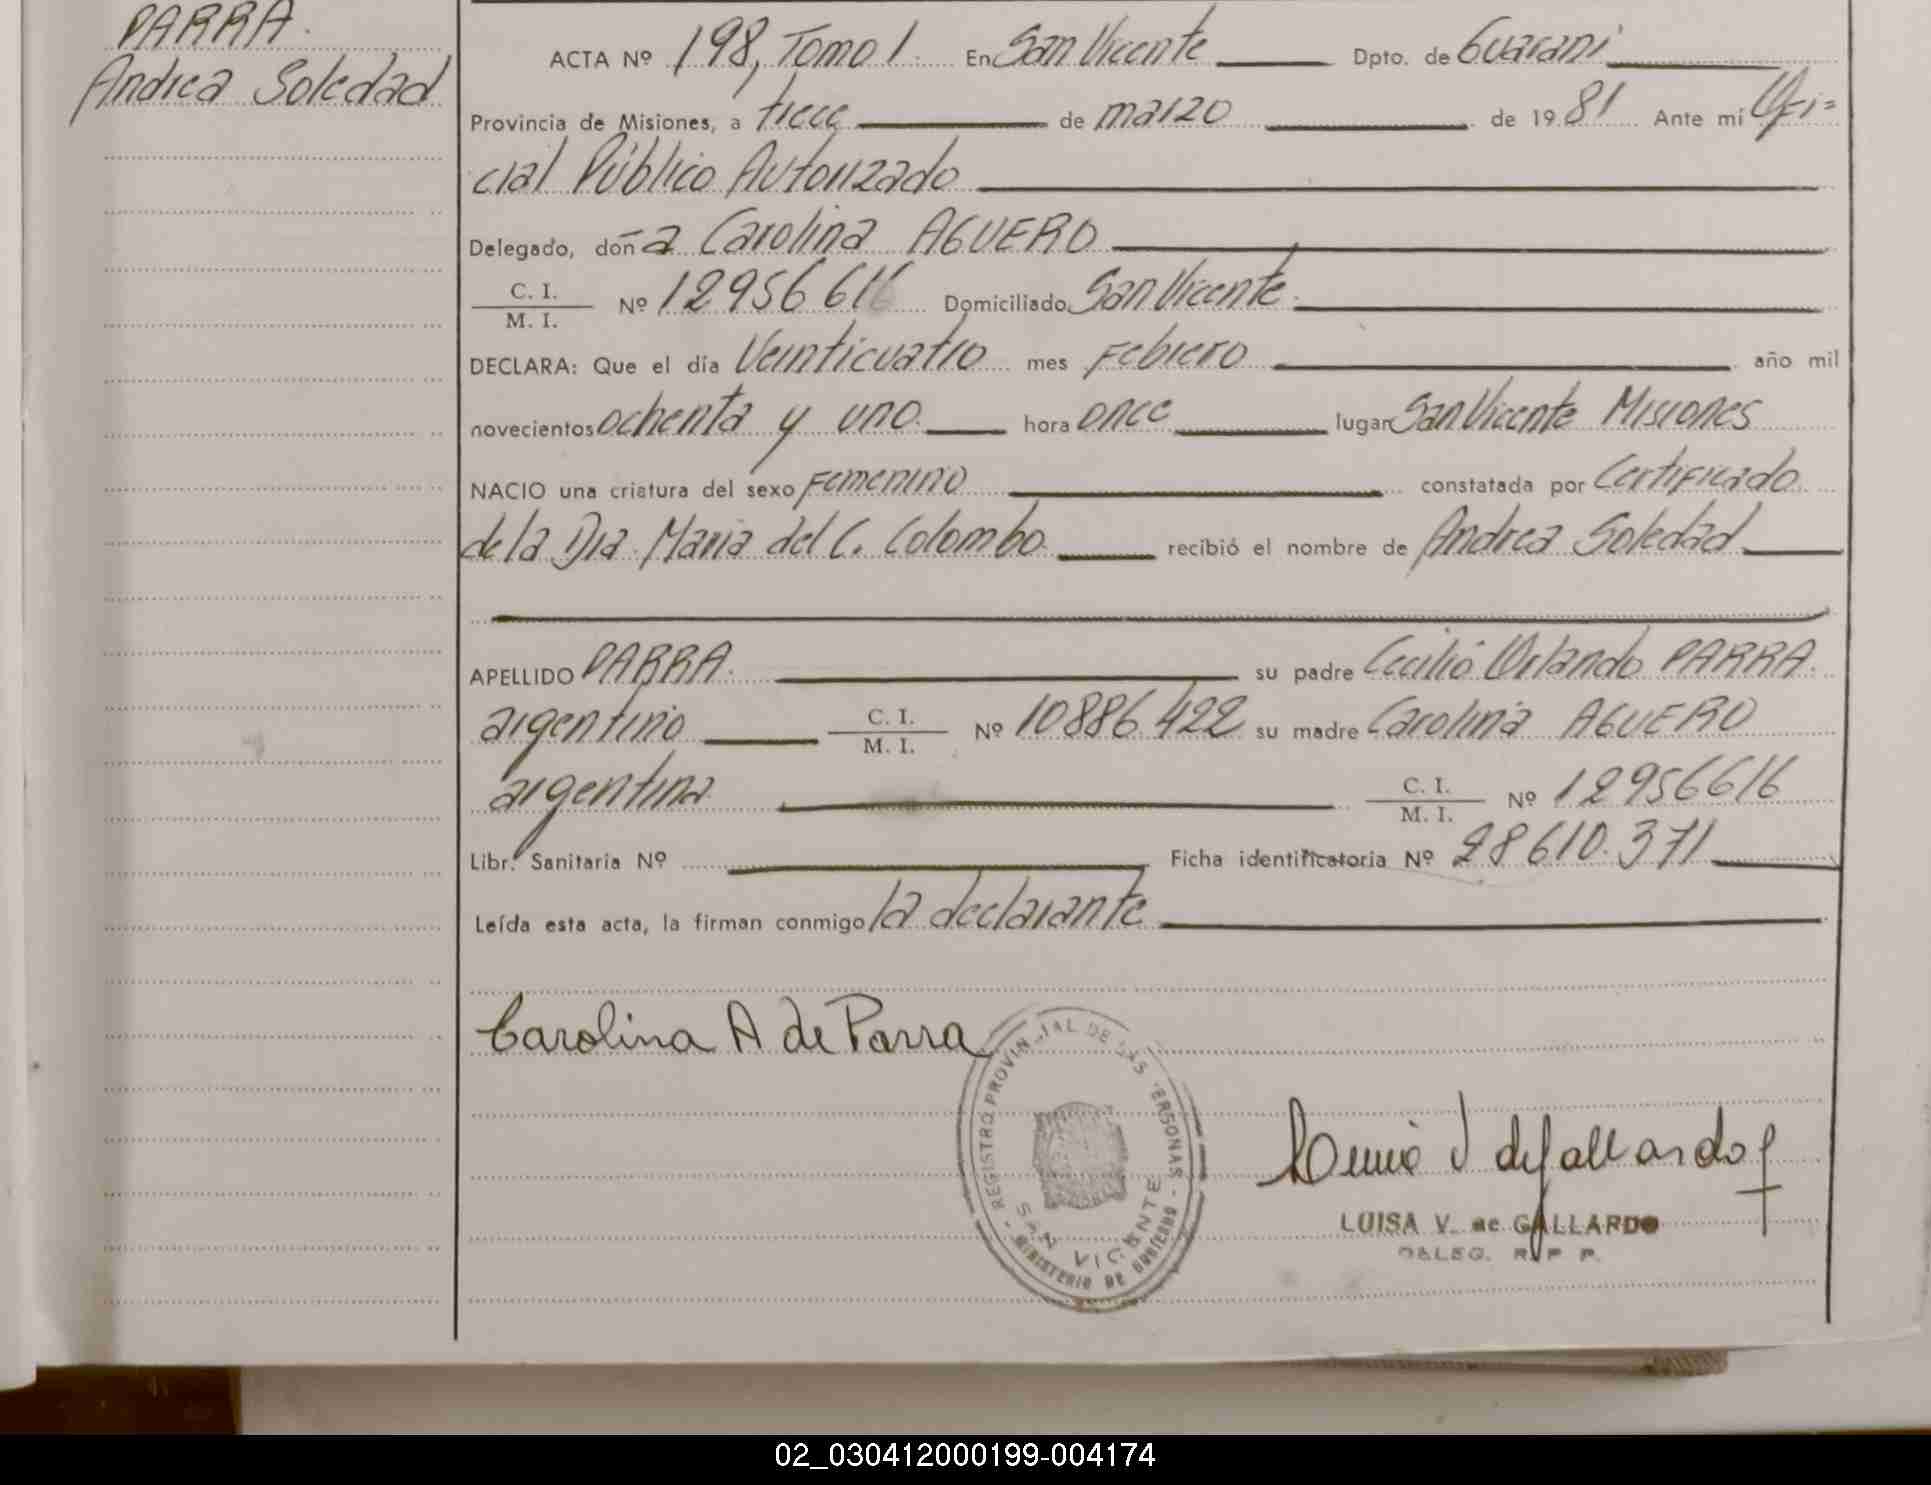 PARRA.
Andrea Soledad
ACTA Nº 198, Tomo I. En San Vicente Dpto. de Guaraní
Provincia de Misiones, a trece de marzo de 1981 Ante mí Ofi=
cial Público Autorizado
Delegado, doña Carolina AGUERO
C. I. / M. I. Nº 12956616 Domiciliado San Vicente.
DECLARA: Que el día Veinticuatro mes Febrero año mil
novecientos ochenta y uno. hora once lugar San Vicente Misiones
NACIO una criatura del sexo Femenino constatada por Certificado
de la Dra. Maria del C. Colombo. recibió el nombre de Andrea Soledad
APELLIDO PARRA. su padre Cecilio Orlando PARRA.
argentino C. I. / M. I. Nº 10886.422 su madre Carolina AGUERO
argentina C. I. / M. I. Nº 12956616
Libr. Sanitaria Nº Ficha identificatoria Nº 28610.371
Leída esta acta, la firman conmigo la declarante
Carolina A de Parra
REGISTRO PROVINCIAL DE LAS PERSONAS
SAN VICENTE
MINISTERIO DE GOBIERNO
V de Gallardo
LUISA V. de GALLARDO
DELEG. R. P. P.
02_030412000199-004174